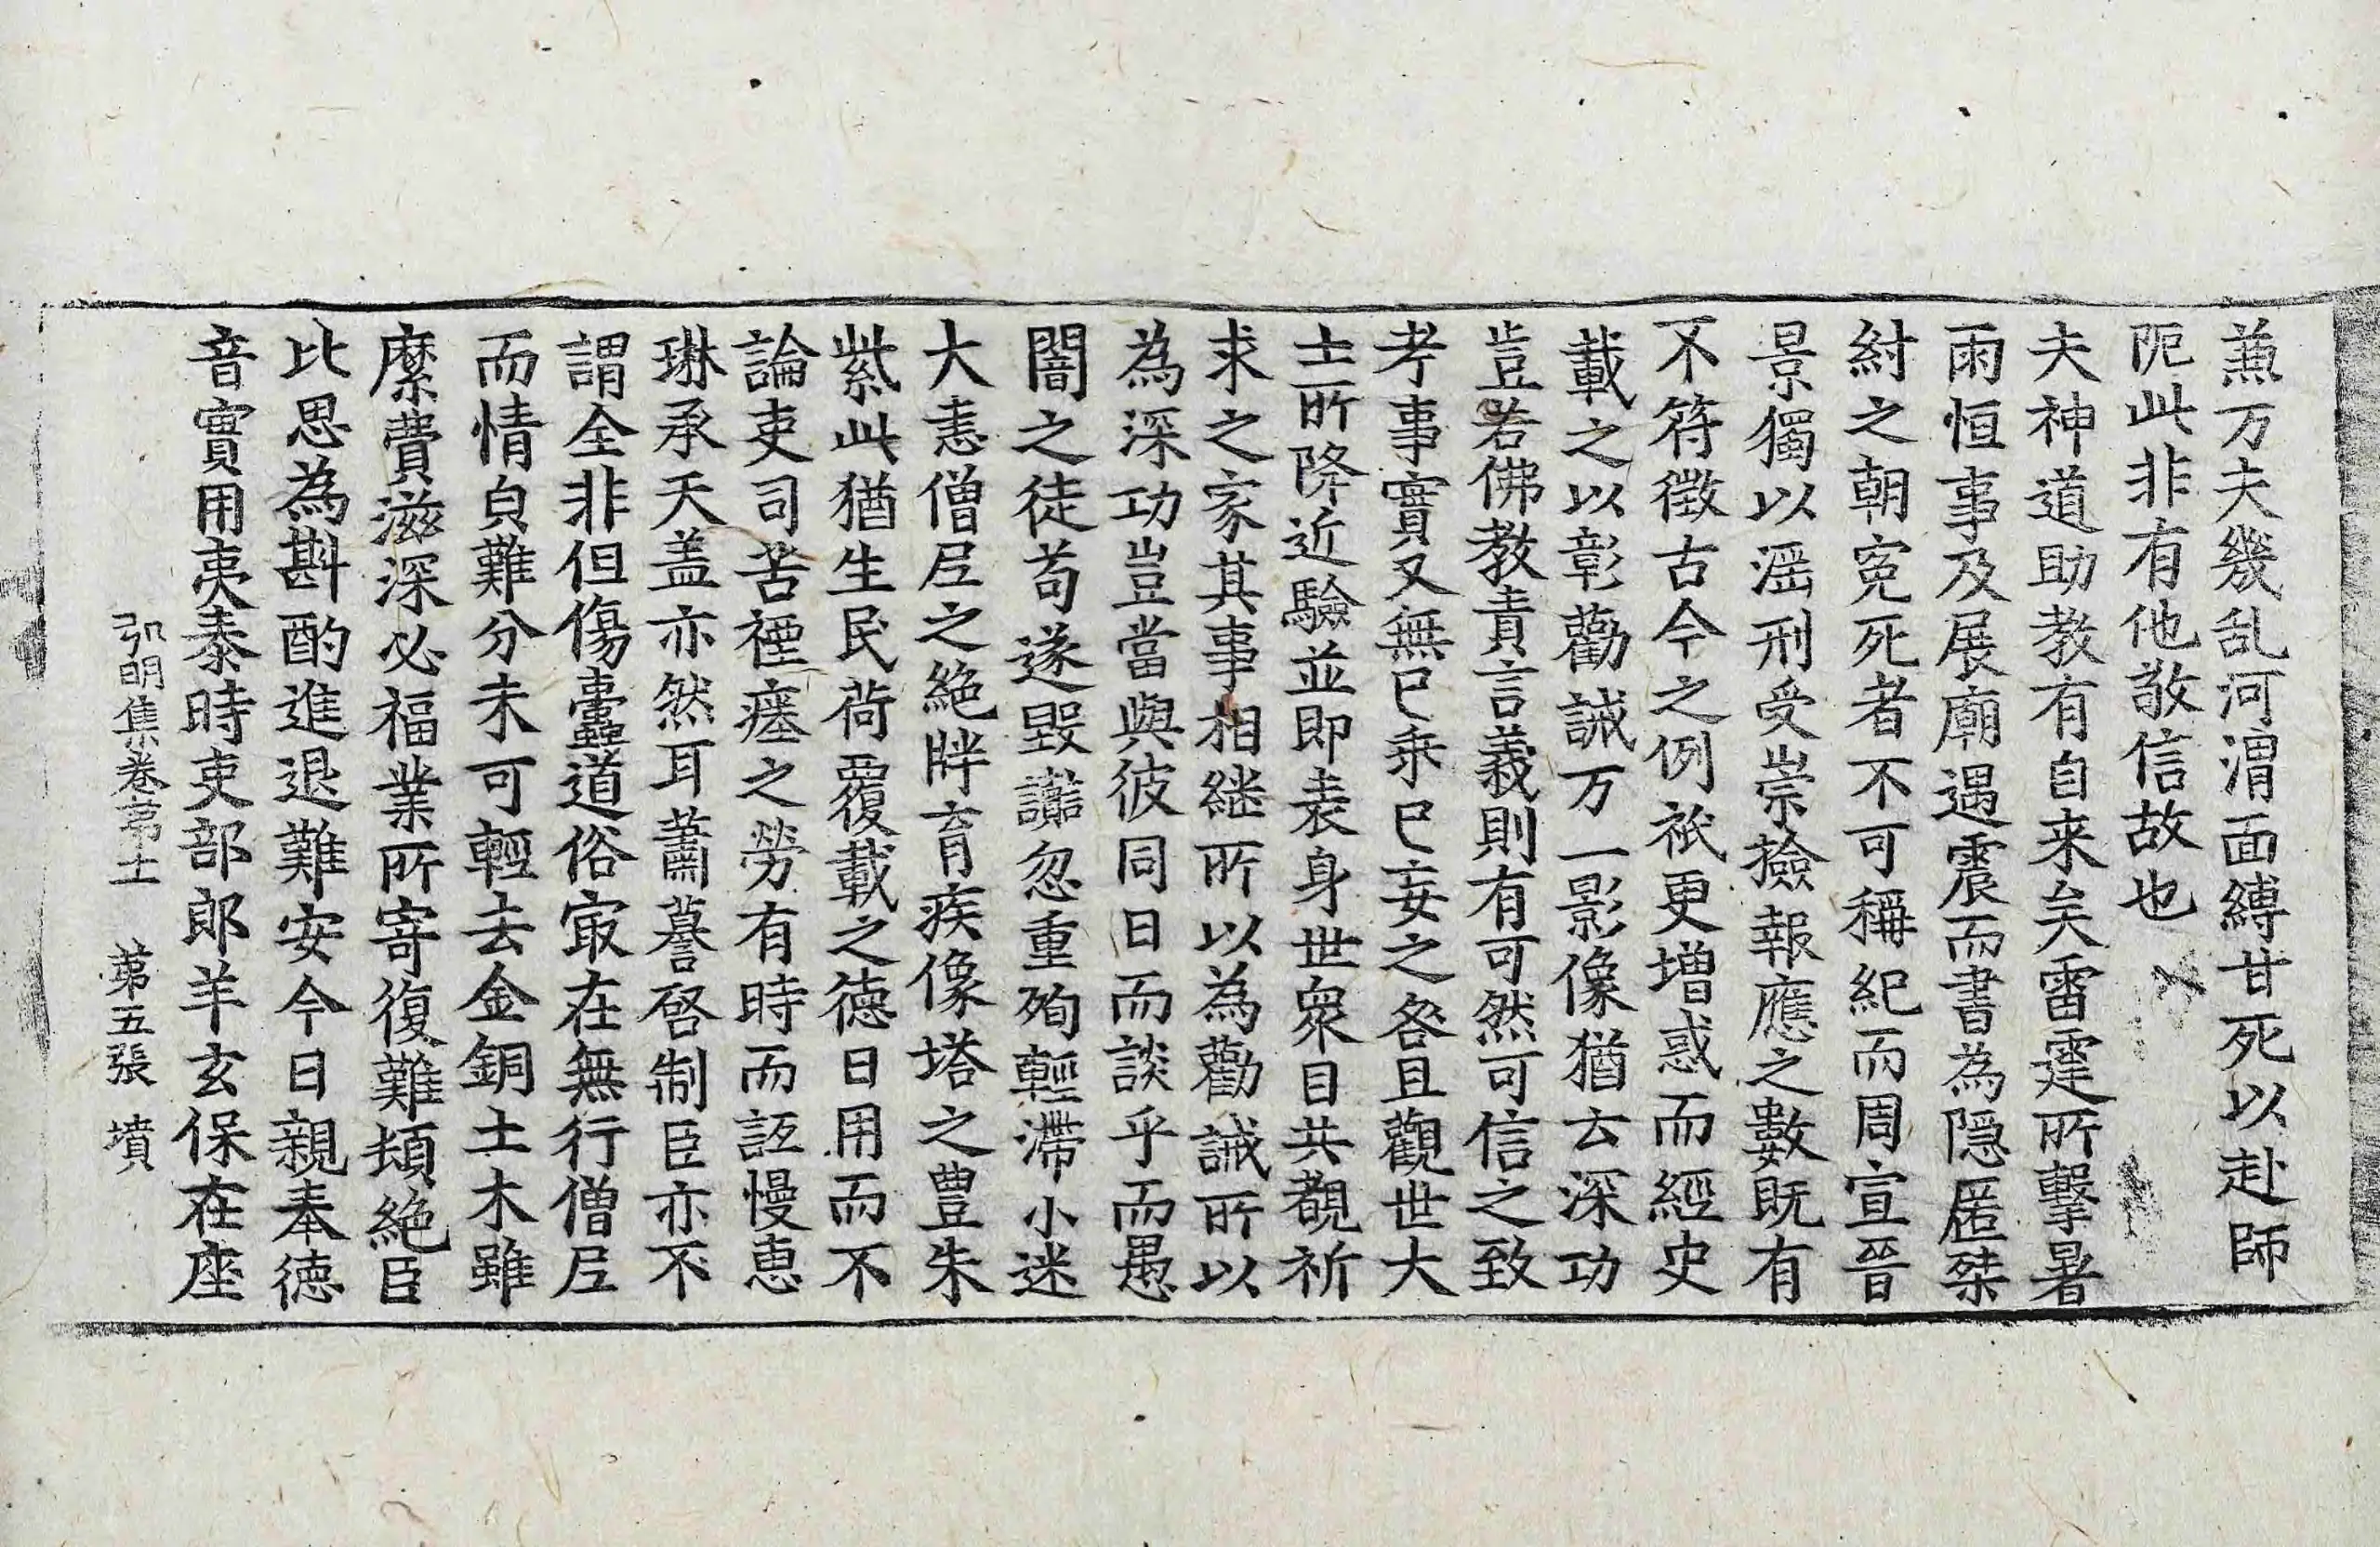 蕉万夫幾乱河渭面縛甘死以赴師
阨此非有他敬信故也
夫神道助教有自来矣雷霆所擊暑
雨恒事及展廟遇震而書為隠匿桀
紂之朝寃死者不可稱紀而周宣晉
景獨以滛刑受崇撿報應之數旣有
不符徵古今之例祇更增惑而經史
載之以彰勸誡万一影像猶云深功
豈若佛教責言義則有可然可信之致
考事實又無已乗已妄之咎且觀世大
士所降近驗並即表身世衆目共覩祈
求之家其事相継所以為勸誡所以
為深功豈當與彼同日而談乎而愚
闇之徒苟遂毀讟忽重殉輕滯小迷
大恚僧尼之絶牉育疾像塔之豊朱
紫此猶生民荷覆載之德日用而不
論吏司苦禋瘞之勞有時而詆慢恵
琳承天盖亦然耳蕭謩啓制臣亦不
謂全非但傷蠹道俗冣在無行僧尼
而情皃難分未可輕去金銅土木雖
縻費滋深必福業所寄復難頓絶臣
比思為斟酌進退難安今日親奉德
音實用夷泰時吏部郎羊玄保在座
弘明集卷苐十一 苐五張 墳